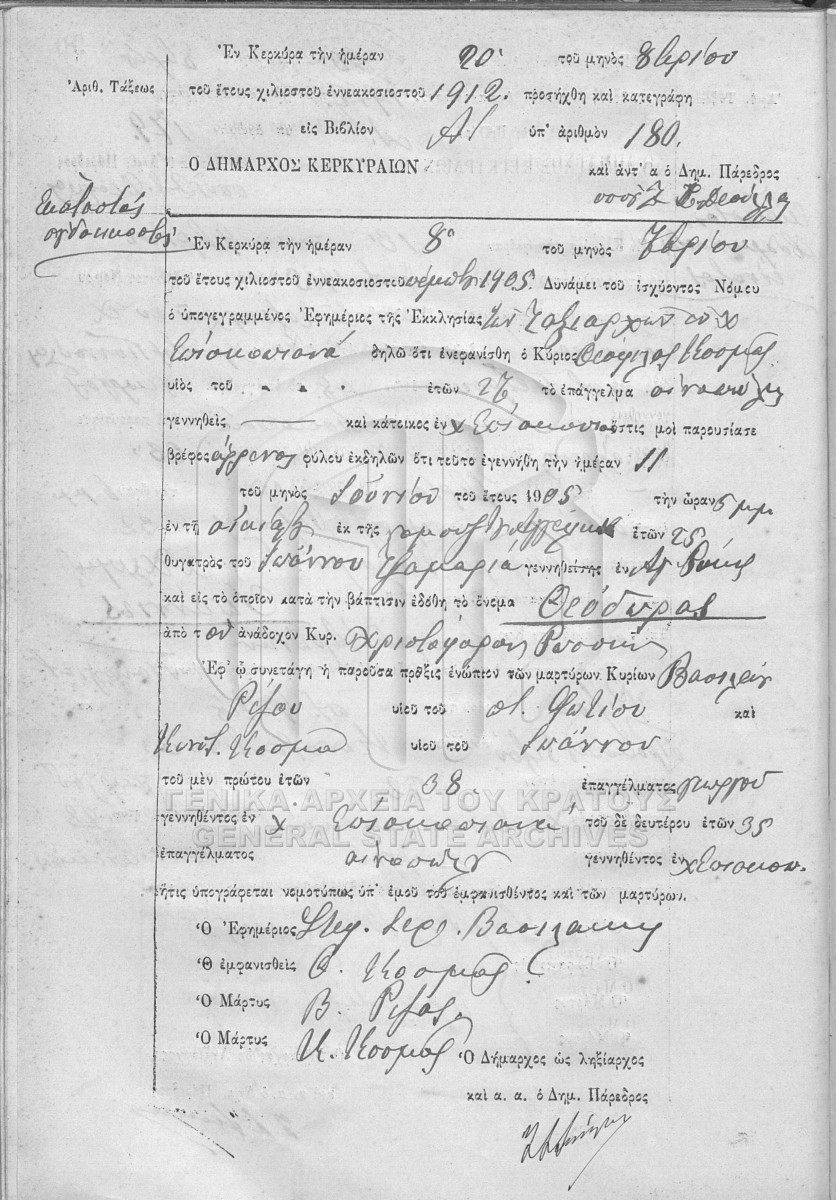 Ἐν Κερκύρᾳ τὴν ἡμέραν 20 τοῦ μηνὸς 8βρίου
Ἀριθ. Τάξεως
τοῦ ἔτους χιλιοστοῦ ἐννεακοσιοστοῦ 1912. προσήχθη καὶ κατεγράφη
εἰς Βιβλίον Α1 ὑπ' ἀριθμὸν 180.
Ὁ ΔΗΜΑΡΧΟΣ ΚΕΡΚΥΡΑΙΩΝ
καὶ ἀντ' α ὁ Δημ. Πάρεδρος
Ἑκατοστὸς
ὀγδοηκοστὸς
Ἐν Κερκύρᾳ τὴν ἡμέραν 8η τοῦ μηνὸς 7βρίου
τοῦ ἔτους χιλιοστοῦ ἐννεακοσιοστοῦ πέμπτου 1905 Δυνάμει τοῦ ἰσχύοντος Νόμου
ὁ ὑπογεγραμμένος Ἐφημέριος τῆς Ἐκκλησίας τῶν Ταξιαρχῶν ἐν χ
Ἐπισκοπιανά δηλῶ ὅτι ἐνεφανίσθη ὁ Κύριος Θεόφιλος Κοσμᾶς
υἱὸς τοῦ ἐτῶν 27 τὸ ἐπάγγελμα οἰνοπώλης
γεννηθεὶς — καὶ κάτοικος ἐν χ Ἐπισκοπια ὅστις μοὶ παρουσίασε
βρέφος ἄρρενος φύλου ἐκδηλῶν ὅτι τοῦτο ἐγεννήθη τὴν ἡμέραν 11
τοῦ μηνὸς Ἰουνίου τοῦ ἔτους 1905 τὴν ὥραν 5 μμ
ἐν τῇ οἰκίᾳ ἐκ τῆς συζύγου Ἀγγελικῆς ἐτῶν 25
θυγατρὸς τοῦ Ἰωάννου γεννηθείσης ἐν
καὶ εἰς τὸ ὁποῖον κατὰ τὴν βάπτισιν ἐδόθη τὸ ὄνομα Θεόδωρος
ἀπὸ τὸν ἀνάδοχον Κυρ. Χριστόφορον
Ἐφ' ᾧ συνετάγη ἡ παροῦσα πρᾶξις ἐνώπιον τῶν μαρτύρων. Κυρίων Βασιλείου
Ρίζου υἱοῦ τοῦ Φωτίου καὶ
Κωνστ. Κοσμᾶ υἱοῦ τοῦ Ἰωάννου
τοῦ μὲν πρώτου ἐτῶν 38. ἐπαγγέλματος γεωργοῦ
ΓΕΝΙΚΑ ΑΡΧΕΙΑ ΤΟΥ ΚΡΑΤΟΥΣ
γεννηθέντος ἐν χ Ἐπισκοπιανά τοῦ δὲ δευτέρου ἐτῶν 35
GENERAL STATE ARCHIVES
ἐπαγγέλματος οἰνοπώλου γεννηθέντος ἐν χ Ἐπισκοπ.
ἥτις ὑπογράφεται νομοτύπως ὑπ' ἐμοῦ τοῦ ἐμφανισθέντος καὶ τῶν μαρτύρων.
Ὁ Ἐφημέριος Στεφ. Ἱερ. Βασιλάκης
Ὁ ἐμφανισθεὶς Θ. Κοσμᾶς
Ὁ Μάρτυς Β. Ρίζος
Ὁ Μάρτυς Κ. Κοσμᾶς
Ὁ Δήμαρχος ὡς ληξίαρχος
καὶ α. α. ὁ Δημ. Πάρεδρος